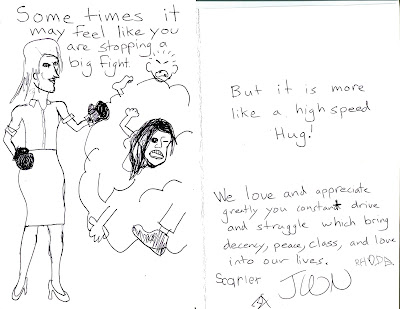 Some times it
may feel like you
are stopping a
big fight.
But it is more
like a high speed
Hug!
We love and appreciate
greatly you constant drive
and struggle which bring
decency, peace, class, and love
into our lives.